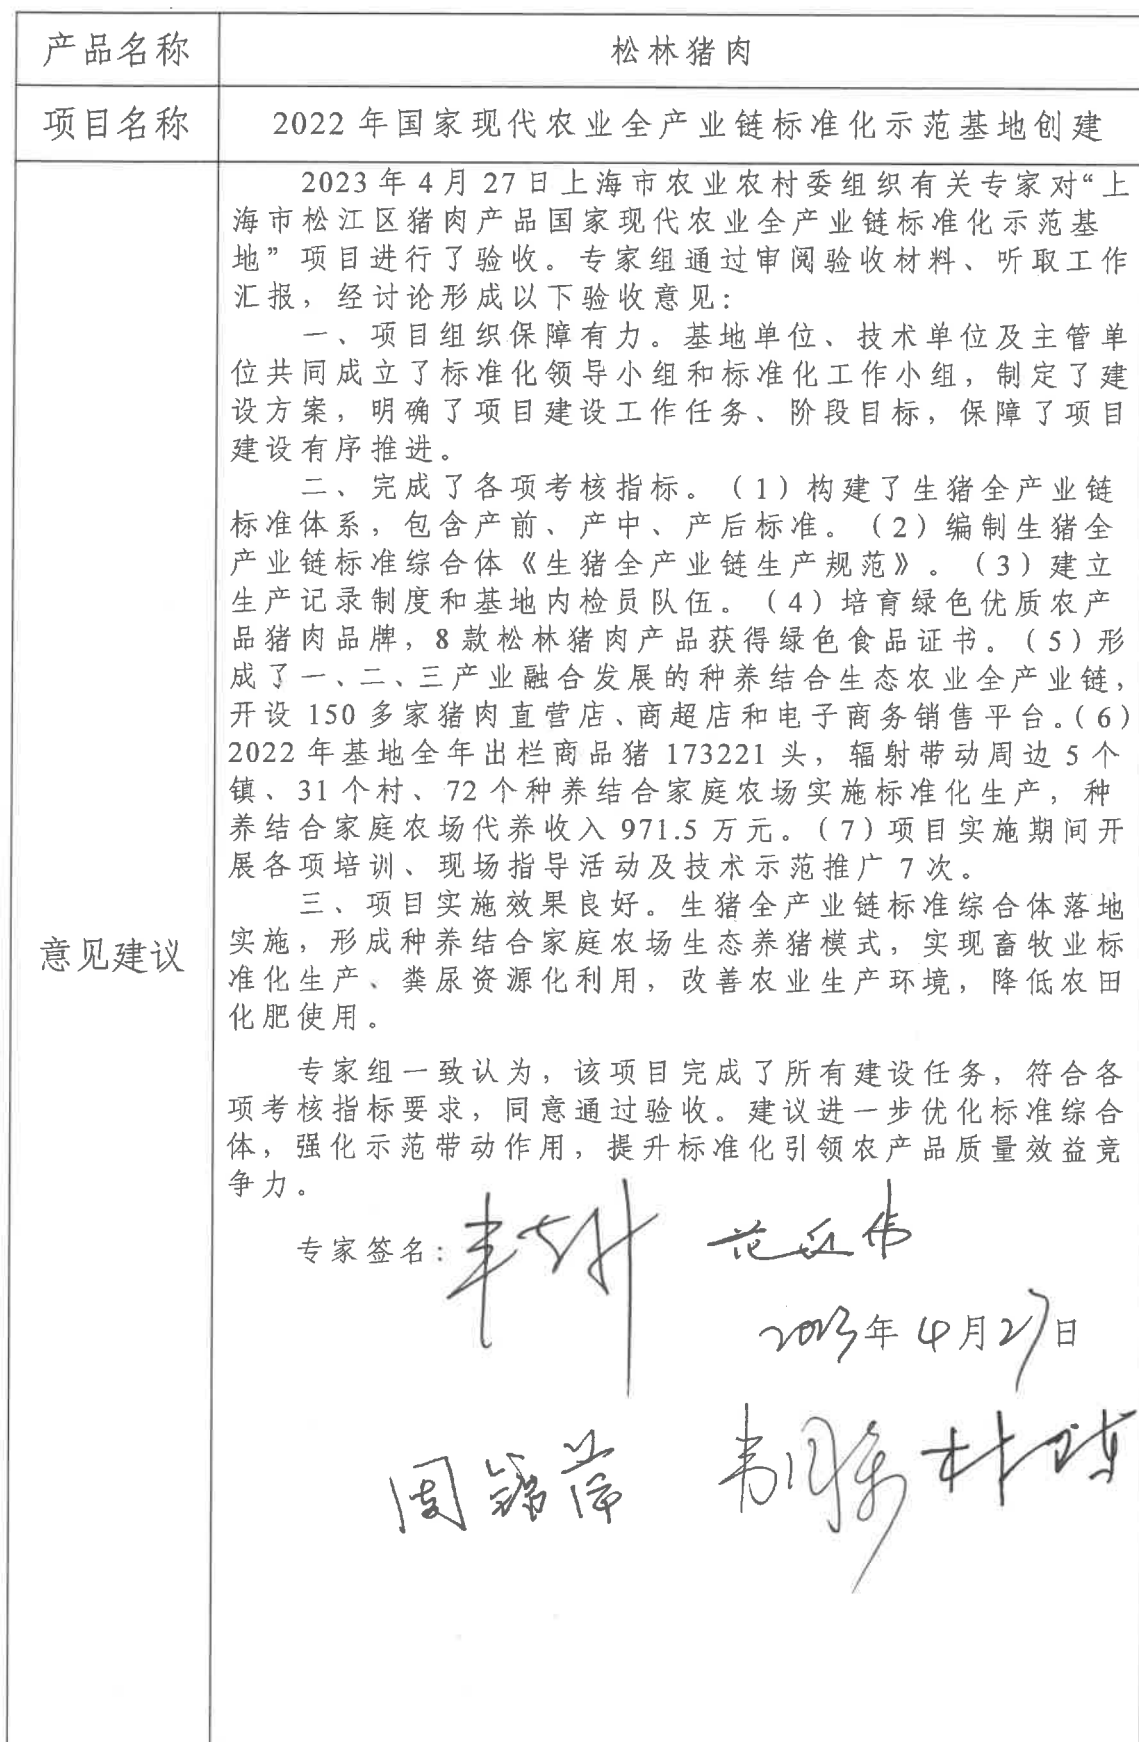 产品名称
松林猪肉
项目名称
2022年国家现代农业全产业链标准化示范基地创建
意见建议
2023年4月27日上海市农业农村委组织有关专家对“上
海市松江区猪肉产品国家现代农业全产业链标准化示范基
地”项目进行了验收。专家组通过审阅验收材料、听取工作
汇报，经讨论形成以下验收意见：
一、项目组织保障有力。基地单位、技术单位及主管单
位共同成立了标准化领导小组和标准化工作小组，制定了建
设方案，明确了项目建设工作任务、阶段目标，保障了项目
建设有序推进。
二、完成了各项考核指标。（1）构建了生猪全产业链
标准体系，包含产前、产中、产后标准。（2）编制生猪全
产业链标准综合体《生猪全产业链生产规范》。（3）建立
生产记录制度和基地内检员队伍。（4）培育绿色优质农产
品猪肉品牌，8款松林猪肉产品获得绿色食品证书。（5）形
成了一、二、三产业融合发展的种养结合生态农业全产业链，
开设150多家猪肉直营店、商超店和电子商务销售平台。（6）
2022年基地全年出栏商品猪173221头，辐射带动周边5个
镇、31个村、72个种养结合家庭农场实施标准化生产，种
养结合家庭农场代养收入971.5万元。（7）项目实施期间开
展各项培训、现场指导活动及技术示范推广7次。
三、项目实施效果良好。生猪全产业链标准综合体落地
实施，形成种养结合家庭农场生态养猪模式，实现畜牧业标
准化生产、粪尿资源化利用，改善农业生产环境，降低农田
化肥使用。
专家组一致认为，该项目完成了所有建设任务，符合各
项考核指标要求，同意通过验收。建议进一步优化标准综合
体，强化示范带动作用，提升标准化引领农产品质量效益竞
争力。
专家签名：
2023年4月27日